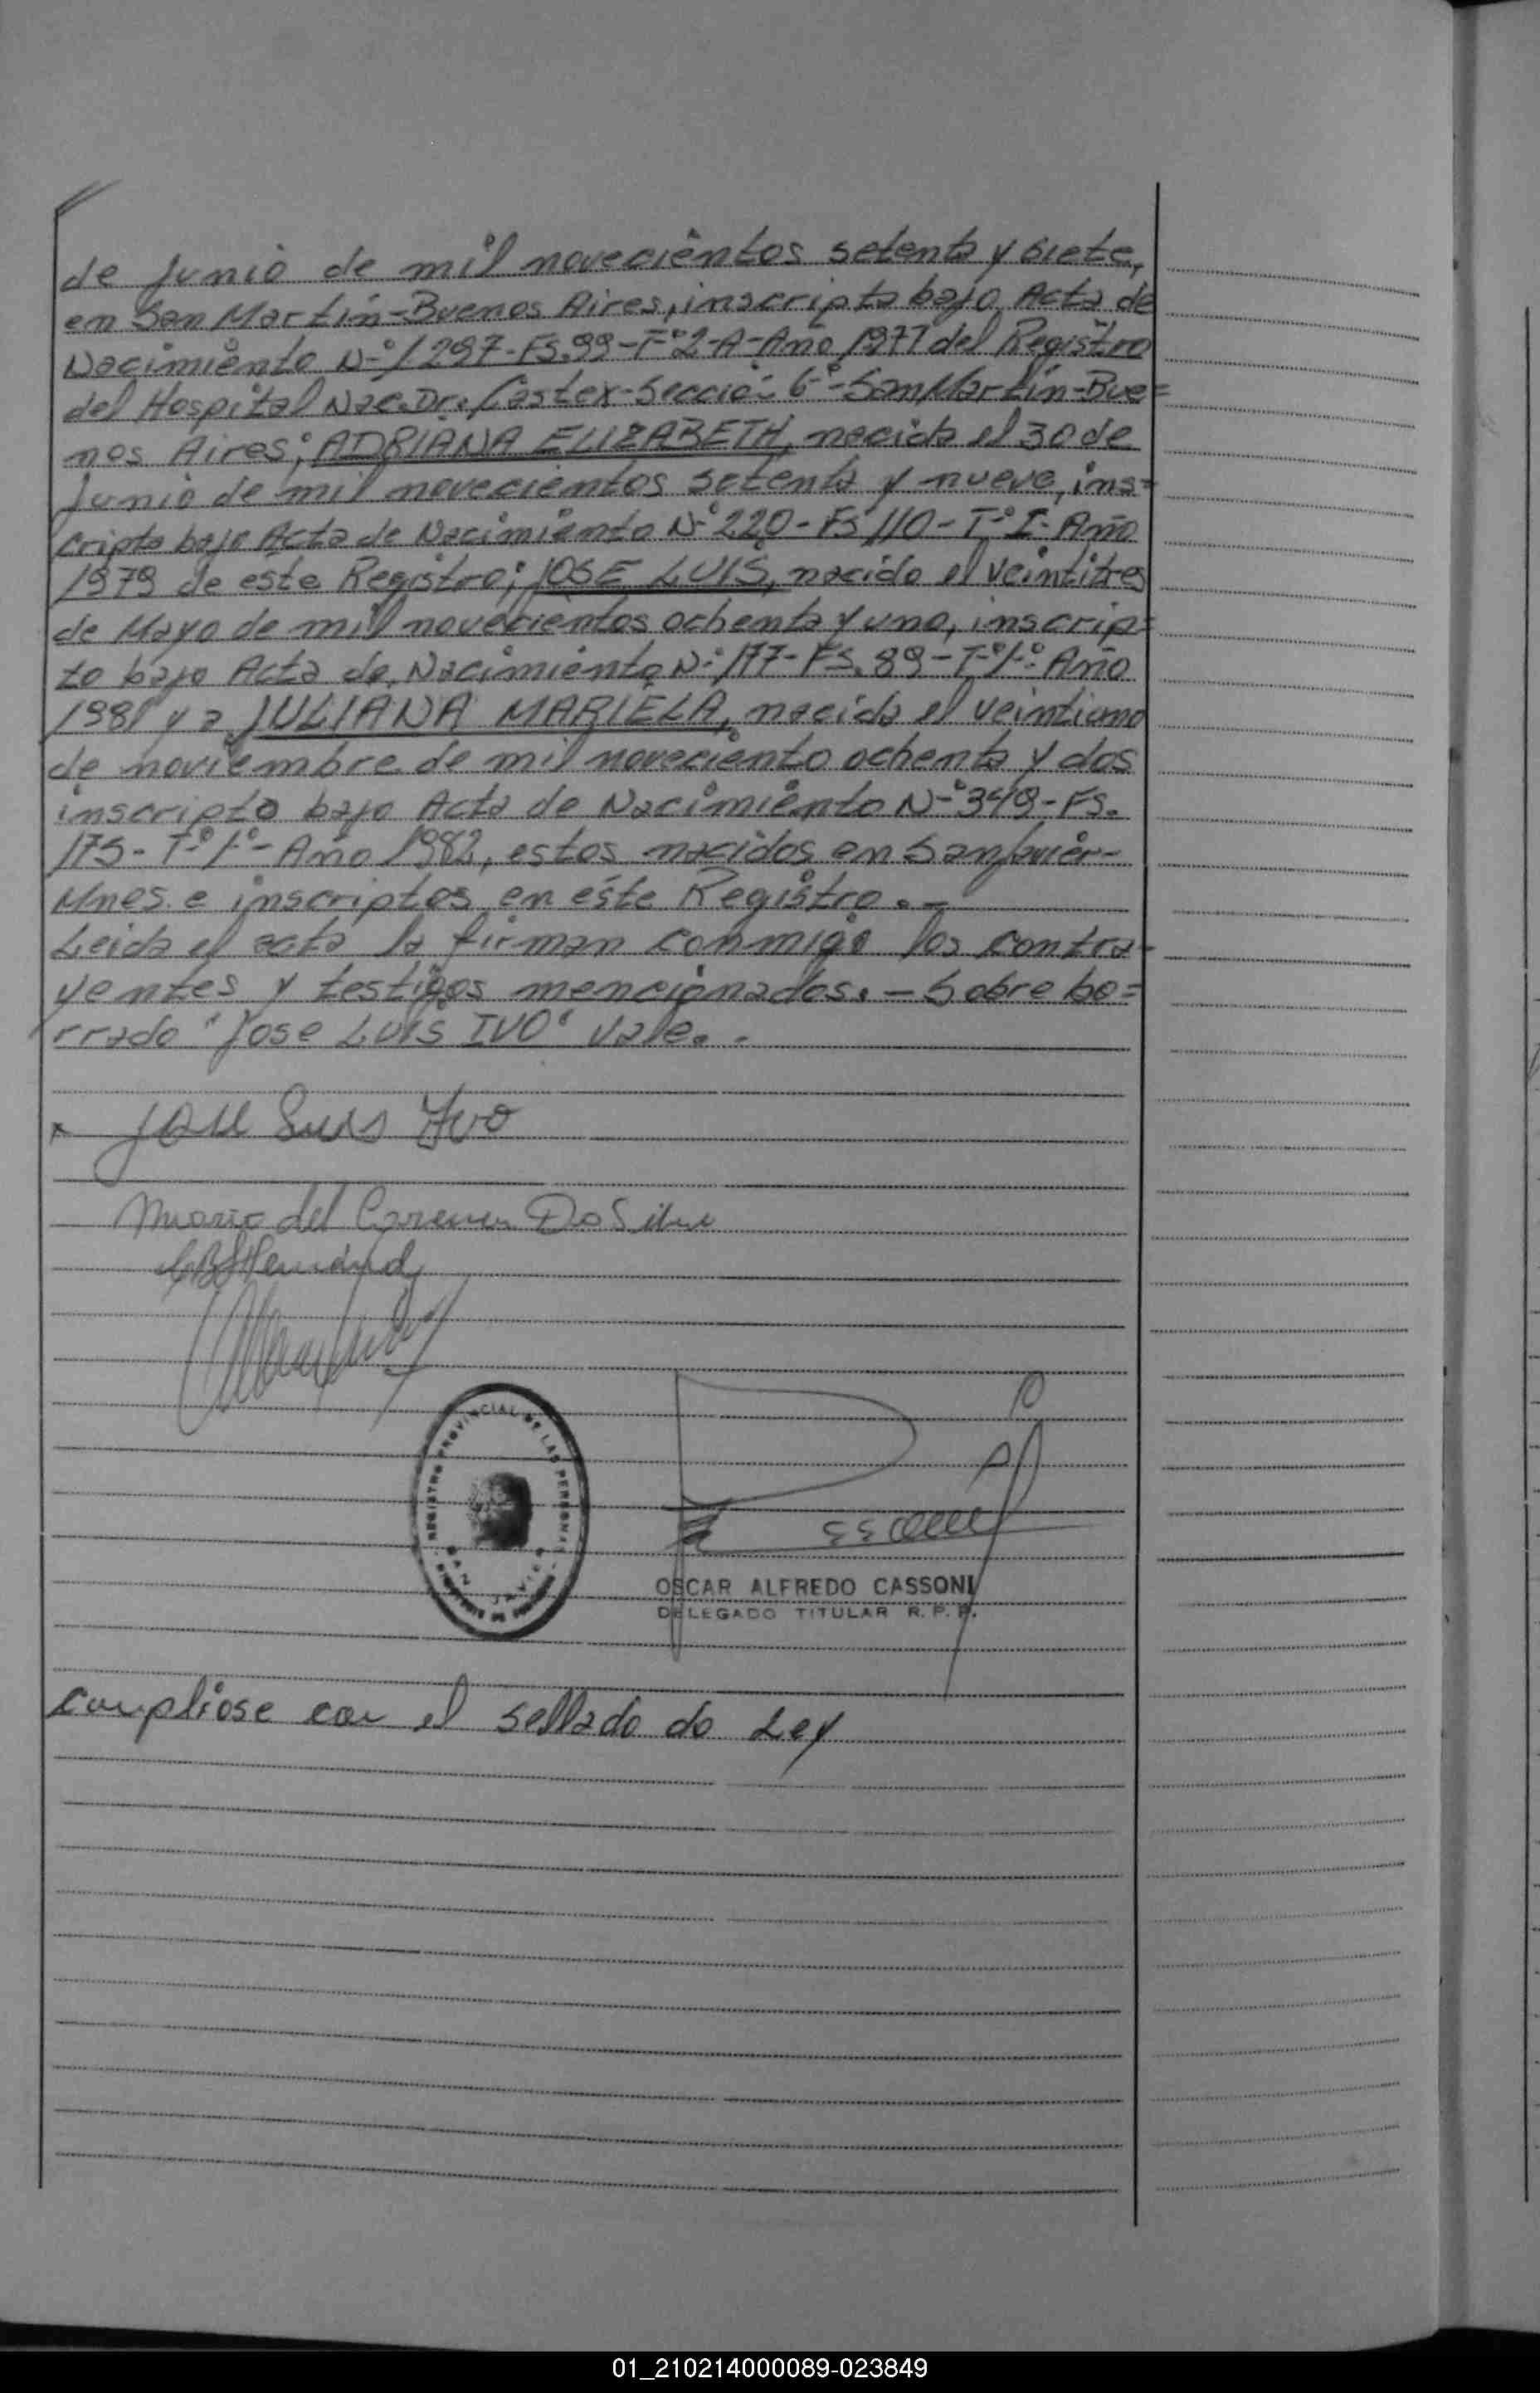 de Junio de mil novecientos setenta y siete,
en San Martín-Buenos Aires, inscripta bajo Acta de
Nacimiento N-º 1297-FS.99-Tº2-A-Año 1977 del Registro
del Hospital Nac. Dr. Castex-Secció- 6-º-San Martín-Bue=
nos Aires; ADRIANA ELIZABETH, nacida el 30 de
Junio de mil novecientos setenta y nueve, ins=
cripta bajo Acta de Nacimiento N-º 220-FS 110-T-º I-Año
1979 de este Registro; JOSE LUIS, nacido el veintitres
de Mayo de mil novecientos ochenta y uno, inscrip=
to bajo Acta de Nacimiento N-º 177-FS.89-T-º1-º Año
1981 y a JULIANA MARIELA, nacida el veintiuno
de noviembre de mil noveciento ochenta y dos
inscripta bajo Acta de Nacimiento N-º 349-FS.
175-T-º1-º-Año 1982, estos nacidos en San Javier-
Mnes. e inscriptos en éste Registro.-
Leida el acta la firman conmigo los contra-
yentes y testigos mencionados.-Sobre bo=
rrado "Jose Luis IVO" Vale.-
x Jose Luis Ivo
Maria del Carmen Da Silva
REGISTRO PROVINCIAL DE LAS PERSONAS
SAN JAVIER
OSCAR ALFREDO CASSONI
DELEGADO TITULAR R. P. P.
Cumpliose con el sellado de Ley
01_210214000089-023849